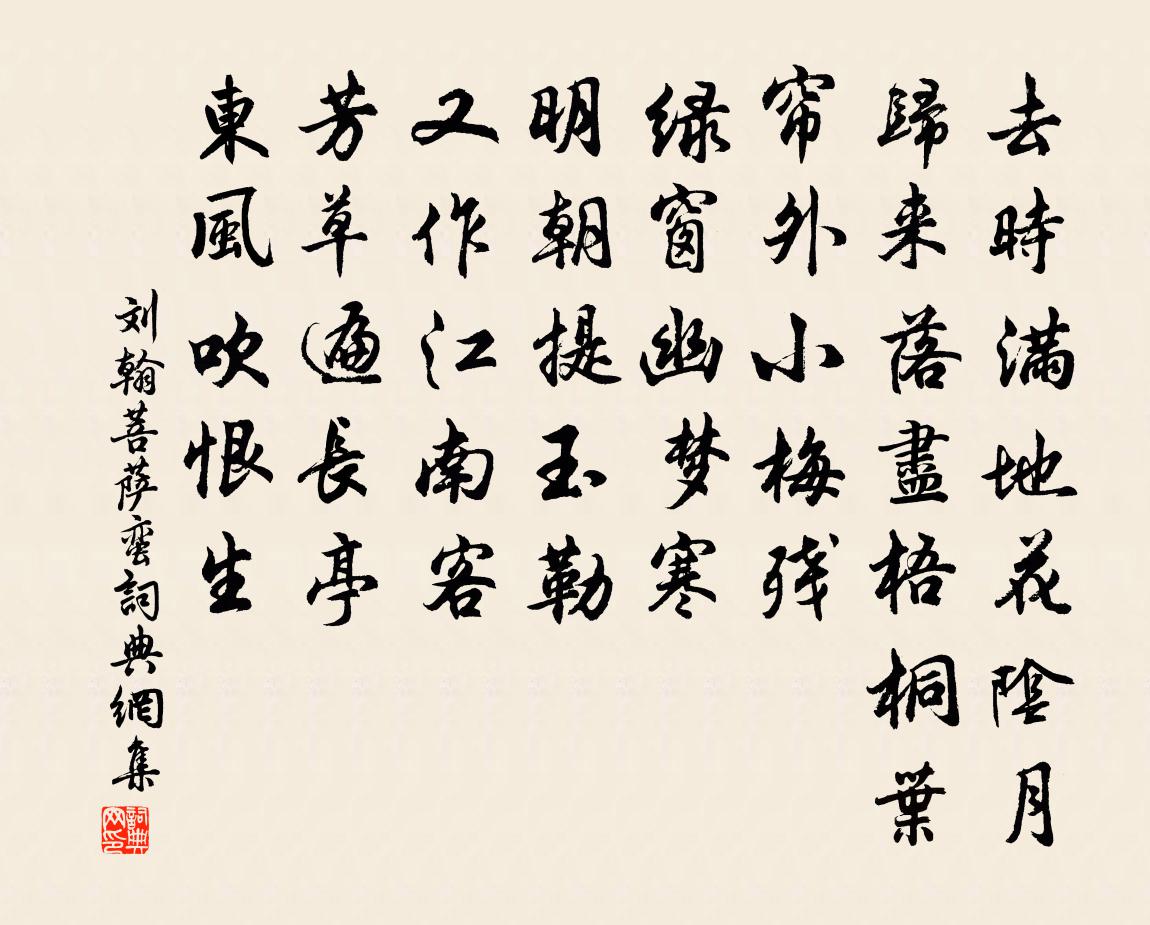 去時滿地花陰月
歸来落盡梧桐葉
帘外小梅残
绿窗幽梦寒
明朝提玉勒
又作江南客
芳草遍長亭
東風吹恨生
刘翰菩萨蛮詞典網集
詞典网印